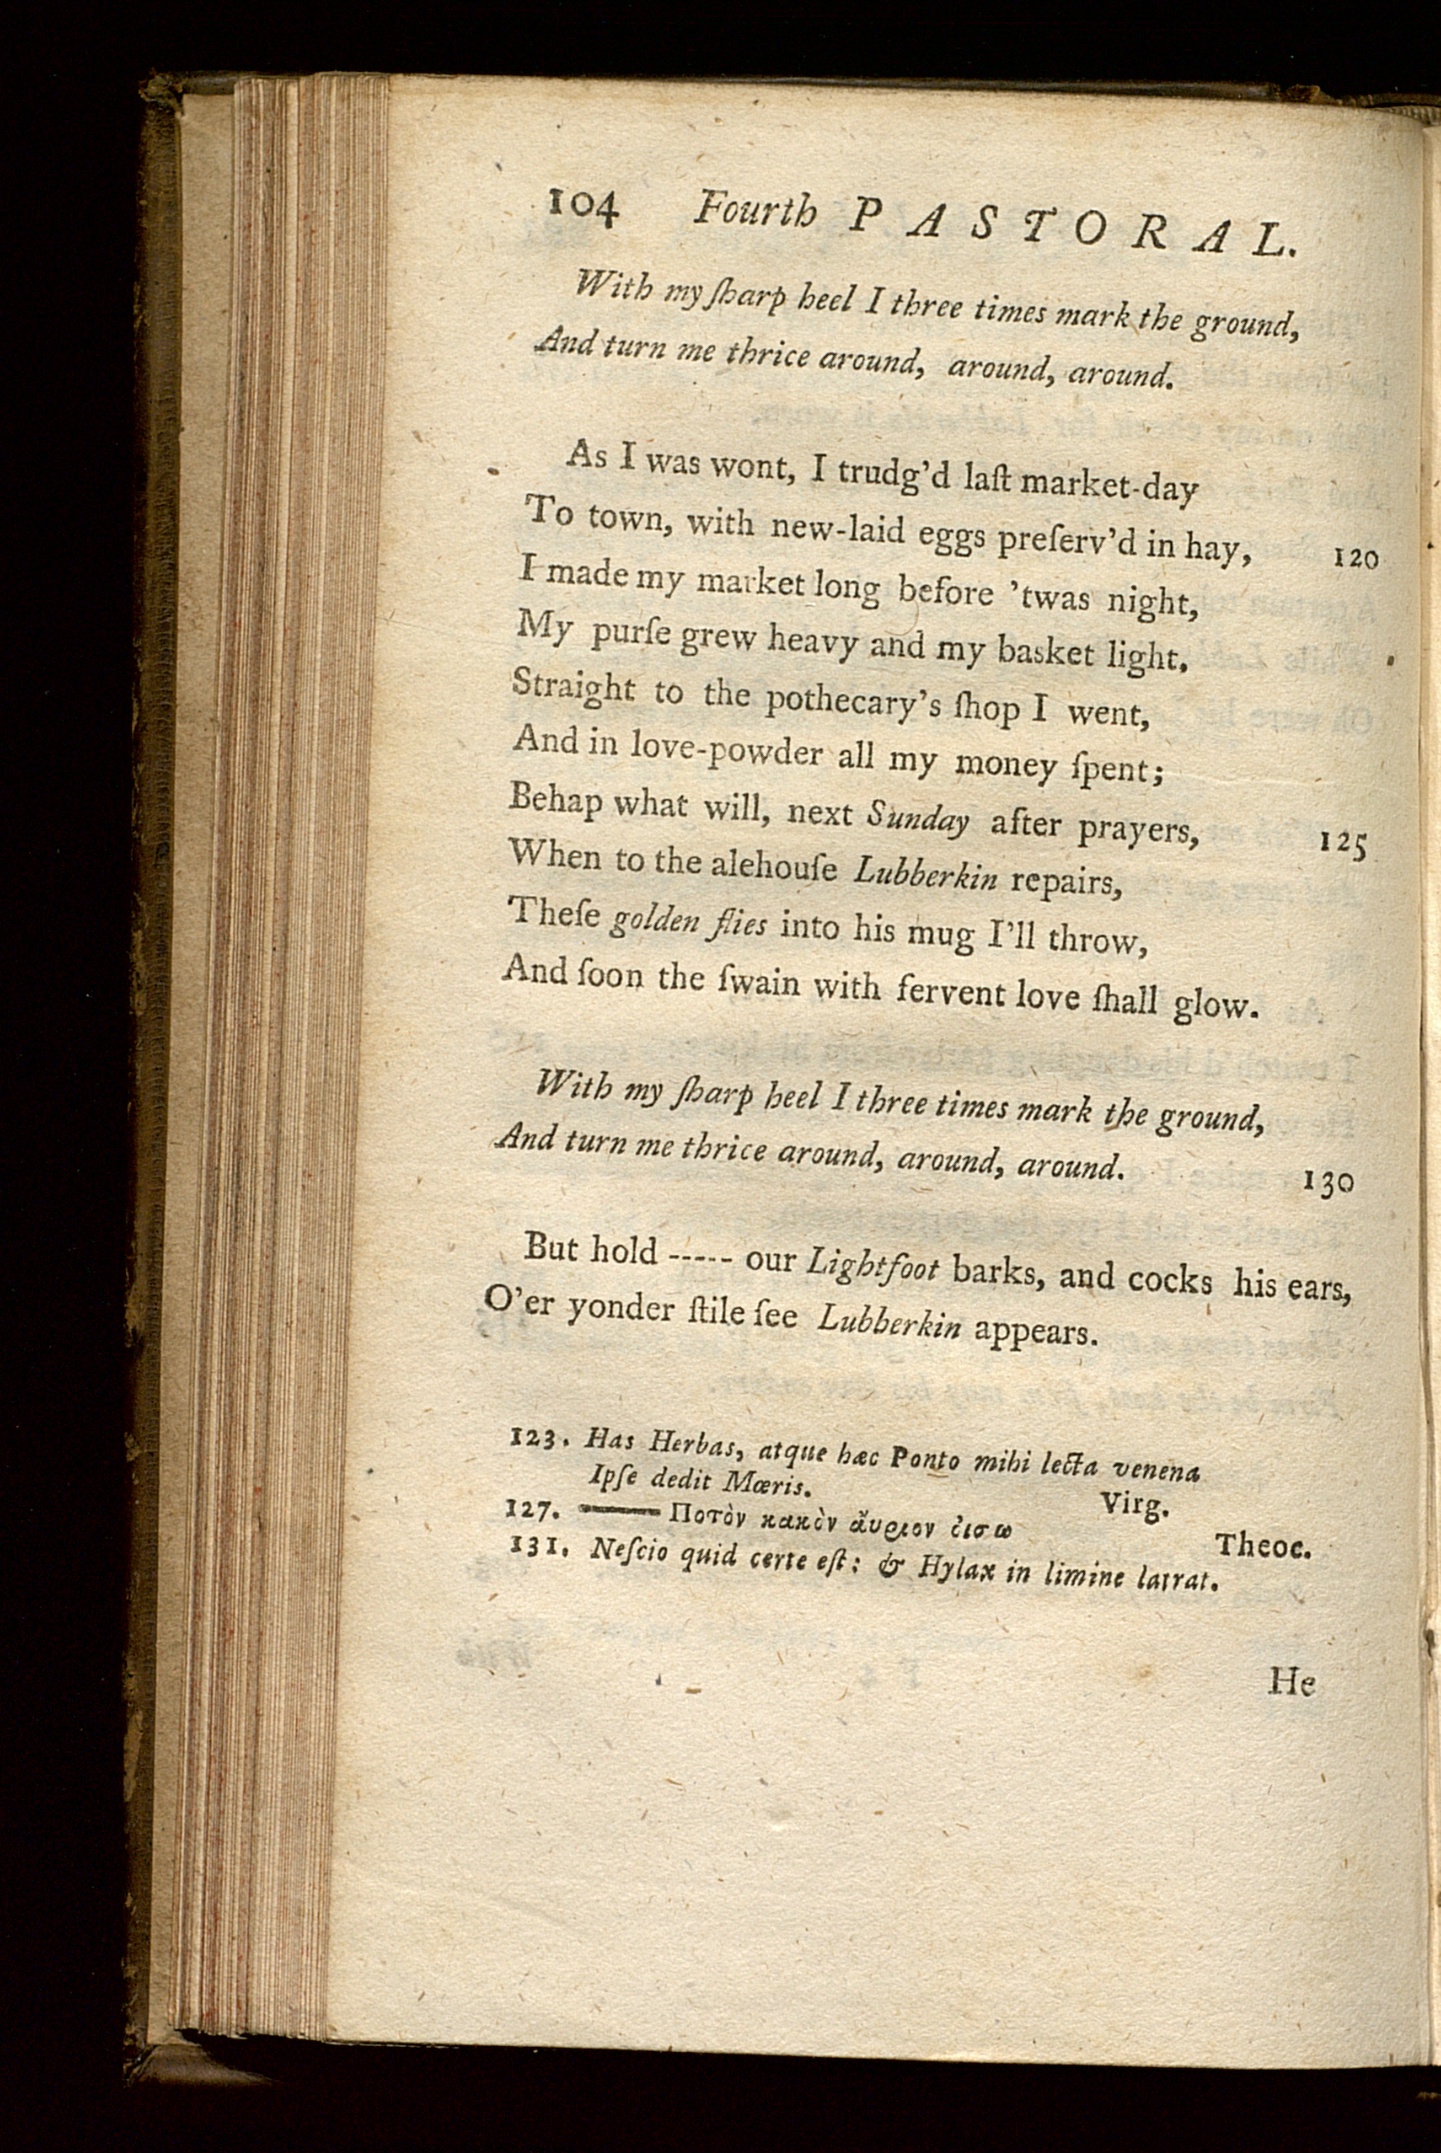 104 Fourth PASTORAL.
With my ſharp heel I three times mark the ground,
And turn me thrice around, around, around.
As I was wont, I trudg'd laſt market-day
To town, with new-laid eggs preſerv'd in hay, 120
I made my market long before 'twas night,
My purſe grew heavy and my basket light.
Straight to the pothecary's ſhop I went,
And in love-powder all my money ſpent;
Behap what will, next Sunday after prayers, 125
When to the alehouſe Lubberkin repairs,
Theſe golden flies into his mug I'll throw,
And ſoon the ſwain with fervent love ſhall glow.
With my ſharp heel I three times mark the ground,
And turn me thrice around, around, around. 130
But hold ----- our Lightfoot barks, and cocks his ears,
O'er yonder ſtile ſee Lubberkin appears.
123. Has Herbas, atque hæc Ponto mihi lecta venena
Ipſe dedit Mœris. Virg.
127. —— Ποτὸν κακὸν ἄυριον ὀισω Theoc.
131. Neſcio quid certe eſt: & Hylax in limine latrat.
He